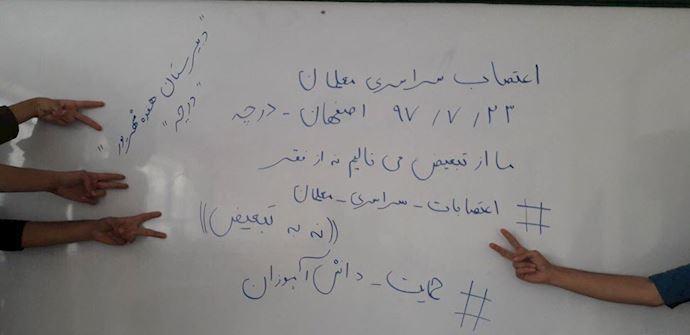 اعتصاب سراسری معلمان
۹۷/۷/۲۳ اصفهان - درچه
ما از تبعیض می نالیم نه از فقر
# اعتصابات - سراسری - معلمان
((نه به تبعیض))
# حمایت - دانش آموزان
"دبیرستان هفده شهریور"
"درچه"